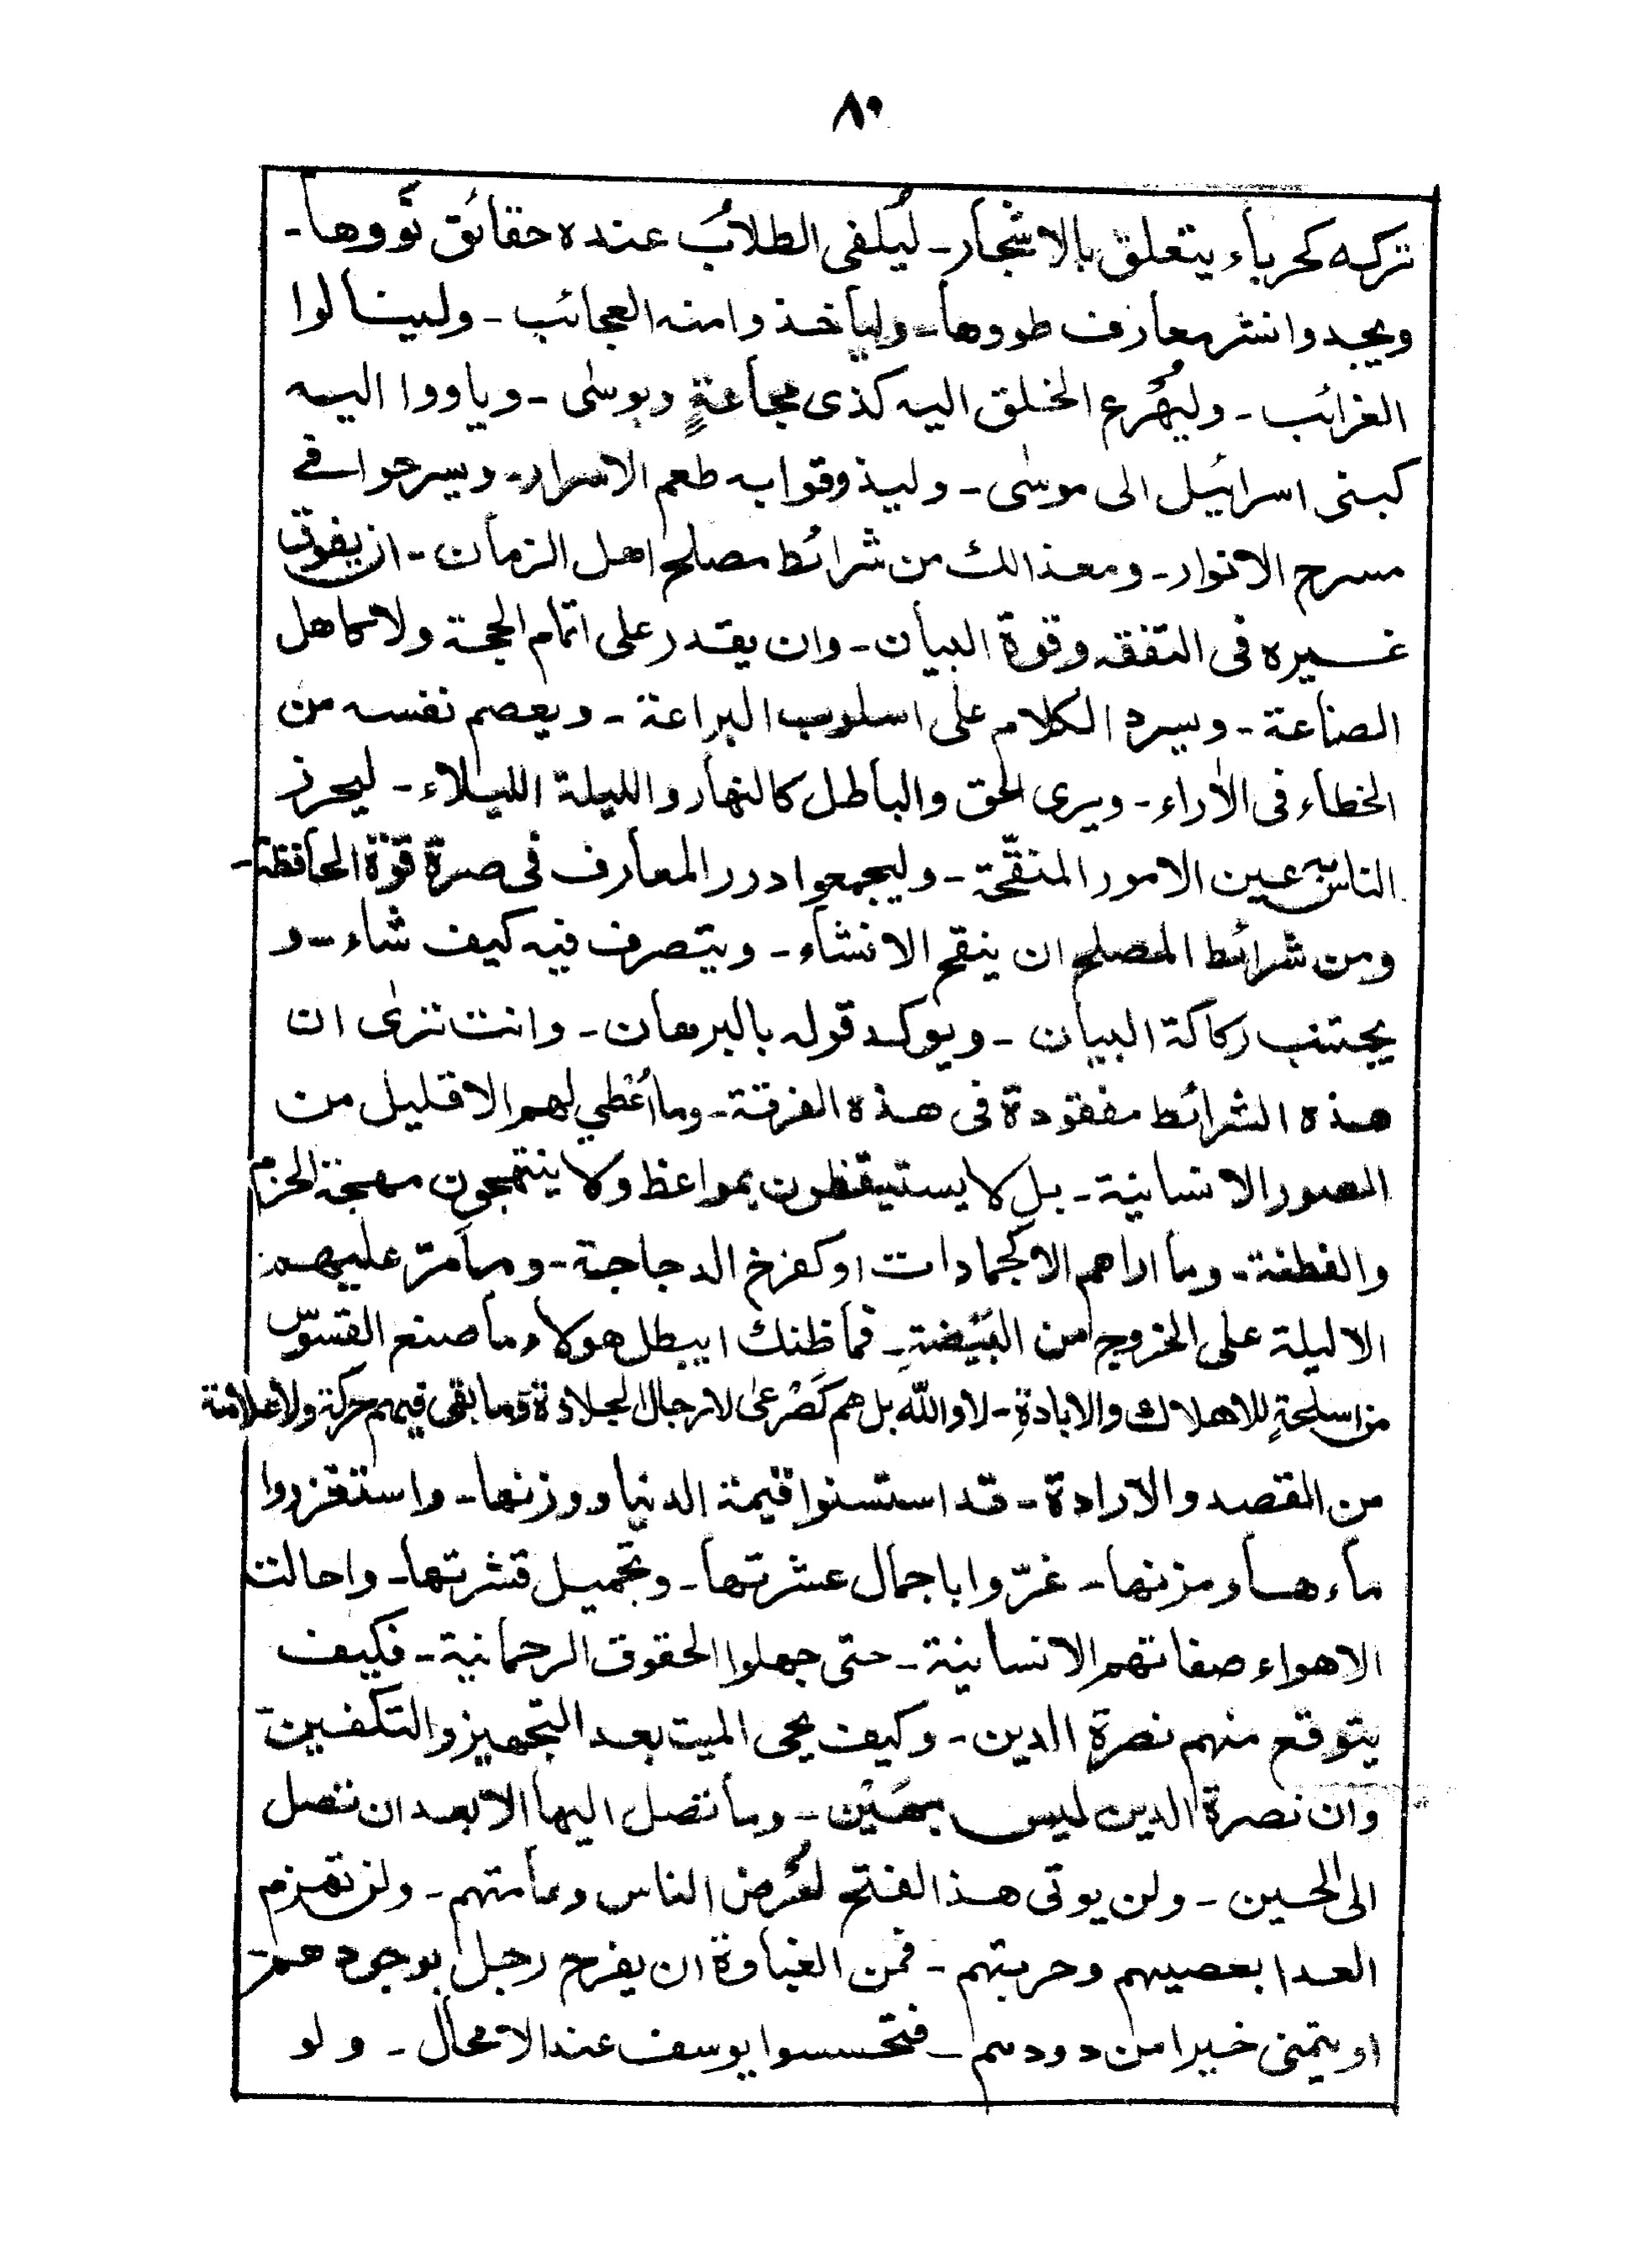 ٨٠
تركه كحرباء يتعلق بالاشجار۔ ليُلفى الطلابُ عنده حقائق نَووها۔
ويجدوا نشر معارف طووها۔ وليأخذوا منه العجائب۔ ولينالوا
الغرائب۔ وليُهرع الخلق اليه كذى مجاعةٍ وبوسٰى۔ وياووا اليه
كبنى اسرائيل الى موسٰى۔ وليذوقوا به طعم الاسرار۔ ويسرحوا فى
مسرح الانوار۔ ومعذالك من شرائط مصلح اهل الزمان۔ ان يفوق
غيره فى التفقه وقوة البيان۔ وان يقدر على اتمام الحجة ولا كاهل
الصناعة۔ ويسرد الكلام على اسلوب البراعة۔ ويعصم نفسه من
الخطاء فى الاٰراء۔ ويرى الحق والباطل كالنهار والليلة الليلاء۔ ليحرز
الناس به عين الامور المنقّحة۔ وليجمعوا درر المعارف فى صرة قوّة الحافظة۔
ومن شرائط المصلح ان ينقح الانشاء۔ ويتصرف فيه كيف شاء۔ و
يجتنب ركاكة البيان۔ ويوكد قوله بالبرهان۔ وانت ترٰى ان
هذه الشرائط مفقودة فى هذه الفرقة۔ وما أُعْطِي لهم الا قليل من
الصور الانسانية۔ بل لا يستيقظون بمواعظ ولا ينتهجون مهجة الحزم
والفطنة۔ وما اراهم الا كجمادات او كفرخ الدجاجة۔ وما مَرّ عليهم
الا ليلة على الخروج من البَيْضةِ۔ فما ظنك ايبطل هولاء ما صنع القسوس
من اسلحةٍ للاهلاك والابادةِ۔ لا والله بل هم كَصَرْعٰى لا رجال الجلادة وما بقى فيهم حركة ولا علامة
من القصد والارادة۔ قد استسنوا قيمة الدنيا ووزنها۔ واستغزروا
ماءها ومزنها۔ غرّوا باجمال عشرتها۔ وتجميل قشرتها۔ واحالت
الاهواء صفاتهم الانسانية۔ حتى جهلوا الحقوق الرحمانية۔ فكيف
يتوقع منهم نصرة الدين۔ وكيف يحى الميت بعد التجهيز والتكفين۔
وان نصرة الدين ليس بهَيْن۔ وما تصل اليها الا بعد ان تصل
الى الحين۔ ولن يوتى هذا الفتح لعُرض الناس وعامتهم۔ ولن تهزم
العدا بعصيهم وحربتهم۔ فمن الغباوة ان يفرح رجل بوجودهم۔
او يتمنى خيرا من دودهم۔ فتحسسوا يوسف عند الامحال۔ ولو